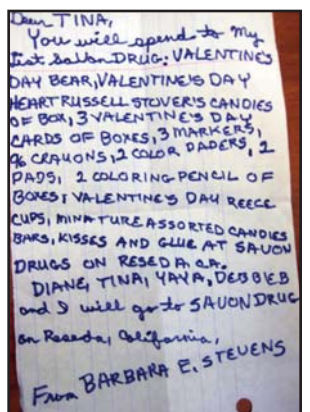 Dear TINA,
You will spend to My
List SavonDRUG: VALENTINE'S
DAY BEAR, VALENTINE'S DAY
HEART RUSSELL STOVER'S CANDIES
OF BOX, 3 VALENTINE'S DAY
CARDS OF BOXES, 3 MARKERS,
96 CRAYONS, 2 COLOR PADERS, 2
PADS, 2 COLORING PENCIL OF
BOXES; VALENTINE'S DAY REECE
CUPS, MINATURE ASSORTED CANDIES
BARS, KISSES AND GLUE AT SAVON
DRUGS ON RESEDA, CA.
DIANE, TINA, YAYA, DEBBIE B
and I will go to SAVON DRUG
on Reseda, California,
From BARBARA E. STEVENS